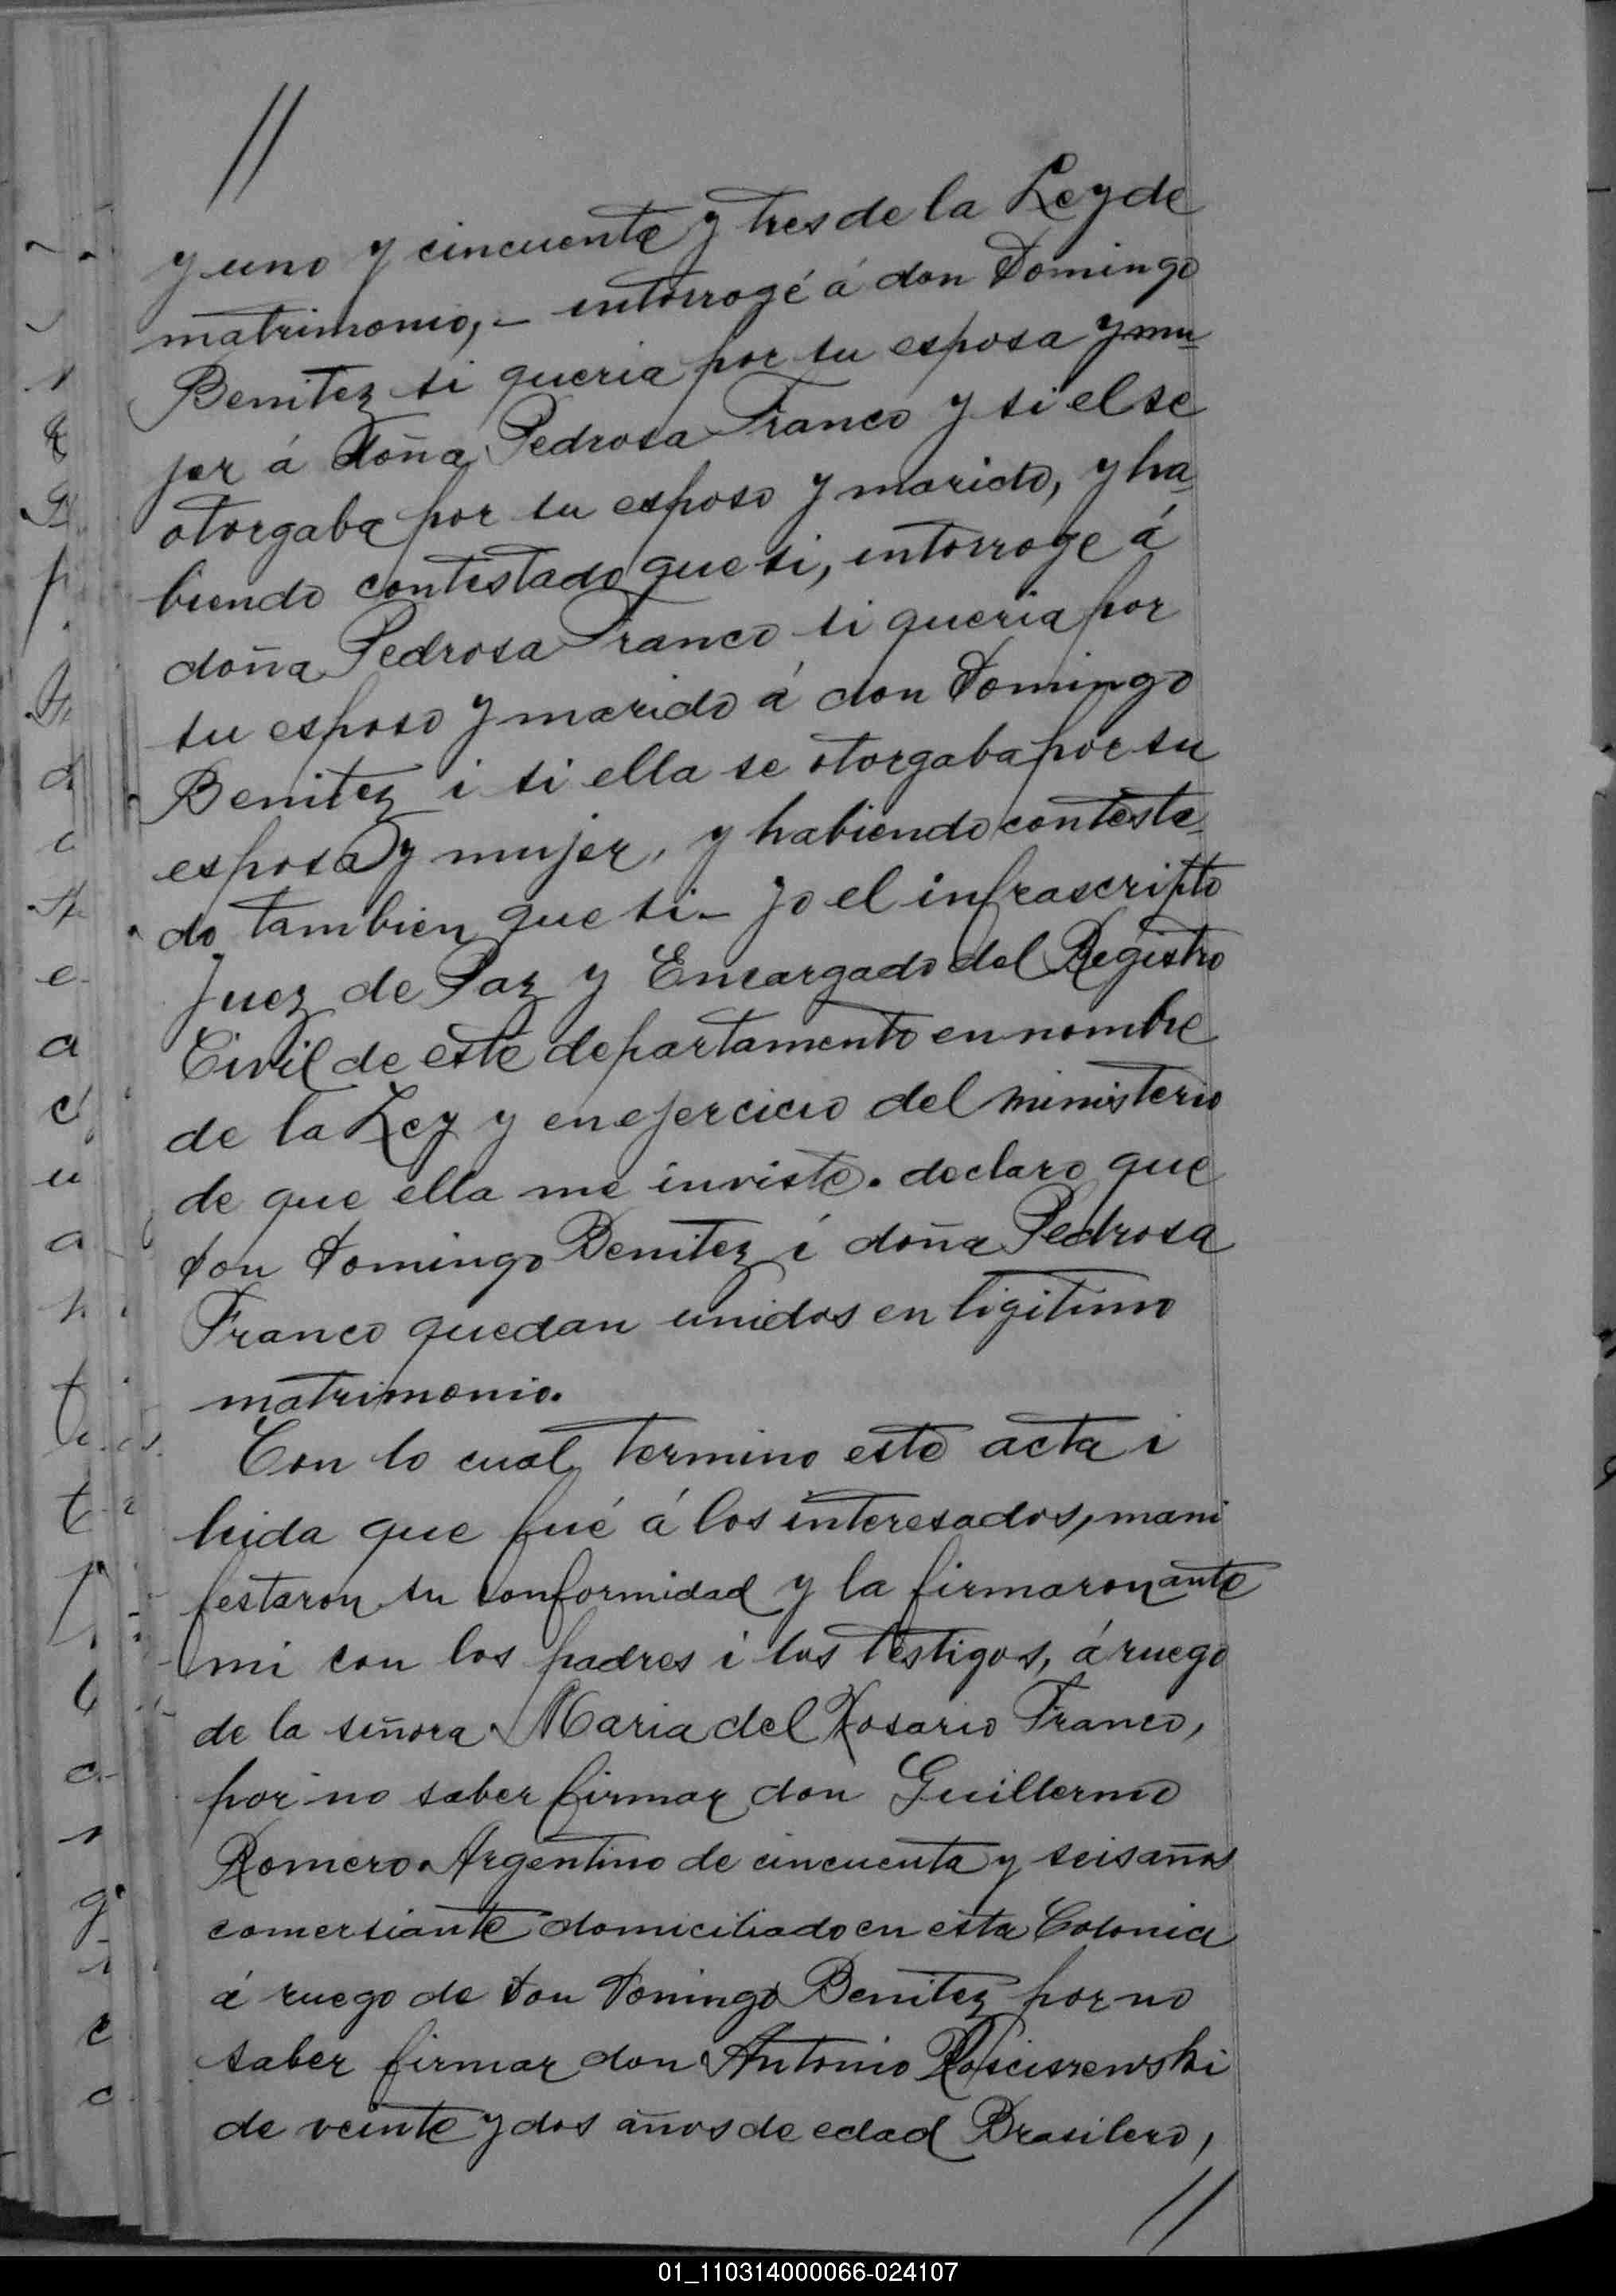 //
y uno y cincuenta y tres de la Ley de
matrimonio,- intorrogé á don Domingo
Benitez si queria por su esposa y mu-
jer á doña Pedrosa Franco y si el se
otorgaba por su esposo y marido, y ha-
biendo contestado que si, intorroge á
doña Pedrosa Franco si queria por
su esposo y marido á don Domingo
Benitez i si ella se otorgaba por su
esposa y mujer, y habiendo contesta-
do tambien que si- yo el infrascripto
Juez de Paz y Encargado del Registro
Civil de este departamento en nombre
de la Ley y en ejercicio del ministerio
de que ella me inviste. declaro que
don Domingo Benitez i doña Pedrosa
Franco quedan unidos en ligitimo
matrimonio.
Con lo cual termino este acta i
leida que fué á los interesados, mani
festaron su conformidad y la firmaron ante
mi con los padres i los testigos, á ruego
de la señora Maria del Rosario Franco,
por no saber firmar don Guillermo
Romero. Argentino de cincuenta y seis años
comersiante domiciliado en esta Colonia
á ruego de don Domingo Benitez por no
saber firmar don Antonio Kosciszewski
de veinte y dos años de edad Brasilero,
//
01_110314000066-024107